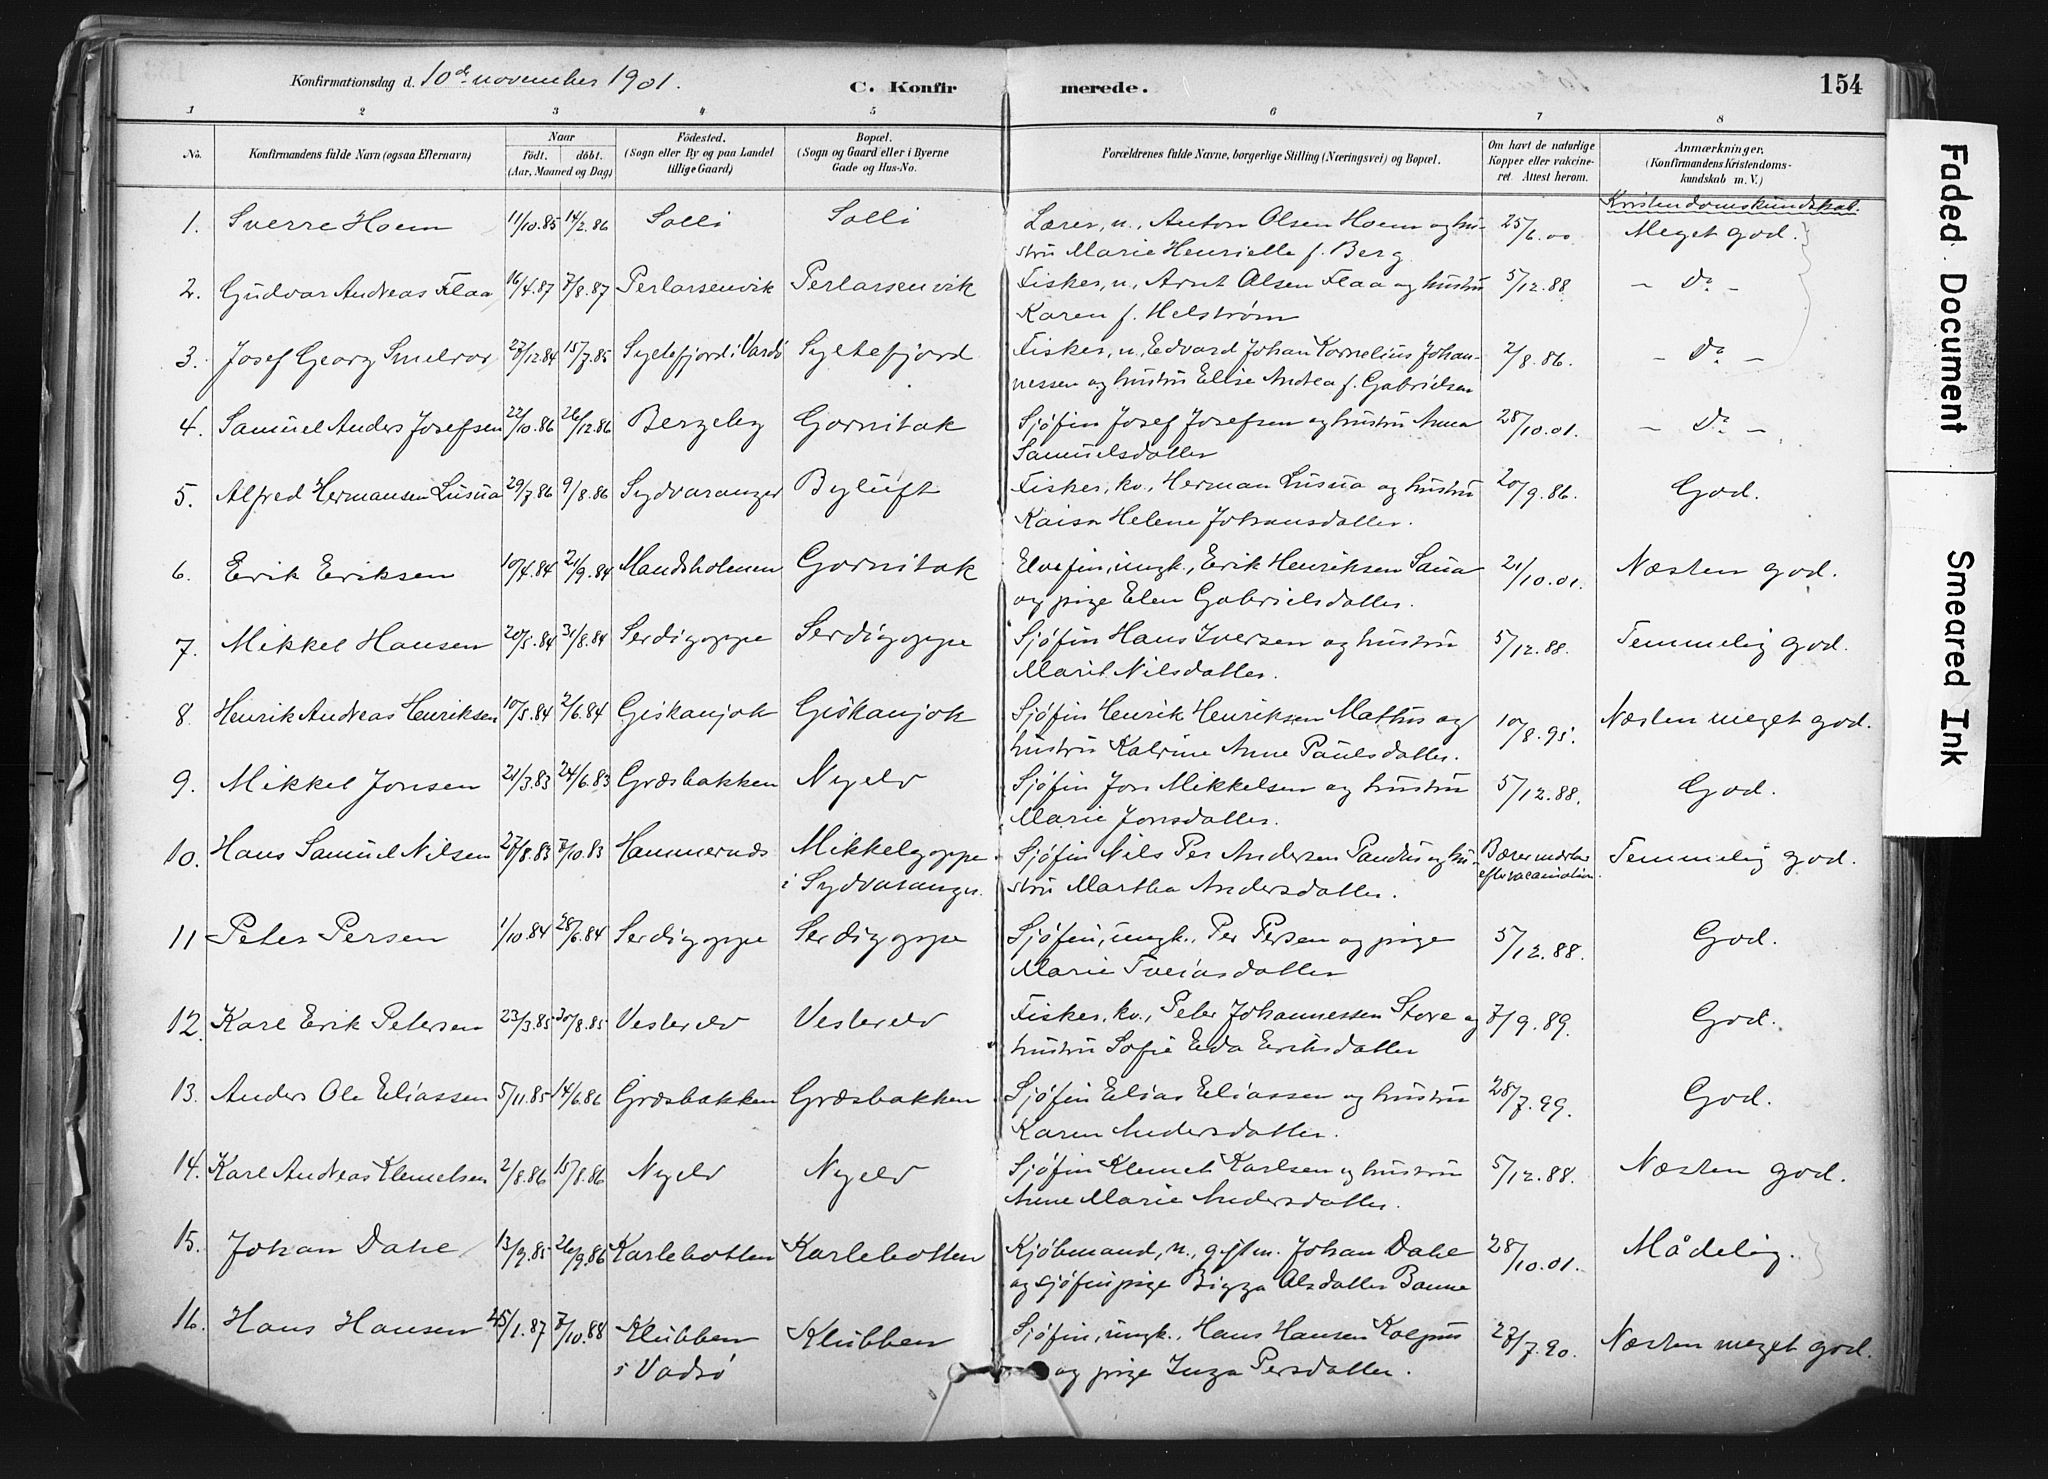 Konfirmationsdag d. 10de november 1901.
C. Konfirmerede.
154
1 2 3 4 5 6 7 8
No. Konfirmandens fulde Navn (ogsaa Efternavn) Naar födt. döbt. (Aar, Maaned og Dag) Födested. (Sogn eller By og paa Landet tillige Gaard) Bopæl. (Sogn og Gaard eller i Byerne Gade og Hus-No. Forældrenes fulde Navne, borgerlige Stilling (Næringsvei) og Bopæl. Om havt de naturlige Kopper eller vakcineret. Attest herom. Anmærkninger. (Konfirmandens Kristendomskundskab m. V.)
Kristendomskundskab.
1. Sverre Hoem 11/10.85 14/2.86 Solli Solli Lærer, n., Anton Olsen Hoem og hu- 25/6.00 Meget god.
stru Marie Henriette f. Berg
2. Gudvar Andreas Flaa 16/4.87 7/8.87 Perlarsenvik Perlarsenvik Fisker, n., Arnt Olsen Flaa og hustru 5/12.88 - Do -
Karen f. Helstrøm
3. Josef Georg Smelror 27/12.84 15/7.85 Syltefjord i Vardö Syltefjord Fisker, n., Edvard Johan Kornelius Johan- 2/8.86. - Do -
nessen og hustru Elise Andrea f. Gabrielsen
4. Samuel Anders Josefsen 22/10.86 26/12.86 Bergeby Gornitak Sjöfin Josef Josefsen og hustru Anna 28/10.01. - Do -
Samuelsdatter
5. Alfred Hermansen Lusua 29/7.86 9/8.86 Sydvaranger Byluft Fisker, kv., Herman Lusua og hustru 20/9.86. God.
Kaisa Helene Johansdatter.
6. Erik Eriksen 10/4.84 21/9.84 Mandsholmen Gornitak Elvefin, ungk., Erik Henriksen Saua 21/10.01. Næsten god.
og pige Elen Gabrielsdatter.
7. Mikkel Hansen 20/5.84 31/8.84 Serdigoppe Serdigoppe Sjöfin Hans Iversen og hustru 5/12.88. Temmelig god.
Marit Nilsdatter.
8. Henrik Andreas Henriksen 10/5.84 2/6.84 Giskanjok Giskanjok Sjöfin Henrik Henriksen Mathus og 10/8.95. Næsten meget god.
hustru Katrine Anne Paulsdatter.
9. Mikkel Jonsen 21/3.83 24/6.83 Græsbakken Nyelv Sjöfin Jon Mikkelsen og hustru 5/12.88. God.
Marie Jonsdatter.
10. Hans Samuel Nilsen 27/8.83 7/10.83 Hammernæs Mikkelgoppe Sjöfin Nils Per Andersen Pandus og hu- Bærer mærker Temmelig god.
i Sydvaranger. stru Martha Andersdatter. efter vaccination.
11 Peter Persen 1/10.84 28/6.84 Serdigoppe Serdigoppe Sjöfin, ungk., Per Persen og pige 5/12.88. God.
Marie Tveiasdatter
12. Karl Erik Petersen 23/3.85 30/8.85 Vesterelv Vesterelv Fisker, kv., Peter Johannessen Store og 7/9.89. God.
hustru Sofie Eva Eriksdatter
13. Anders Ole Eliassen 5/11.85 14/6.86 Græsbakken Græsbakken Sjöfin Elias Eliassen og hustru 28/7.99. God.
Karen Andersdatter.
14. Karl Andreas Klemetsen 2/8.86 15/8.86 Nyelv Nyelv Sjöfin Klemet Karlsen og hustru 5/12.88. Næsten god.
Anne Marie Andersdatter.
15. Johan Dahl 13/9.85 26/9.86 Karlebotten Karlebotten Kjöbmand, n., gift m. Johan Dahl 28/10.01. Mådelig.
og sjöfinpige Bigga Olsdatter Banne
16. Hans Hansen 25/1.87 7/10.88 Klubben Klubben Sjöfin, ungk., Hans Hansen Kolpus 27/7.90. Næsten meget god.
i Vadsö og pige Inga Persdatter.
Faded Document
Smeared Ink